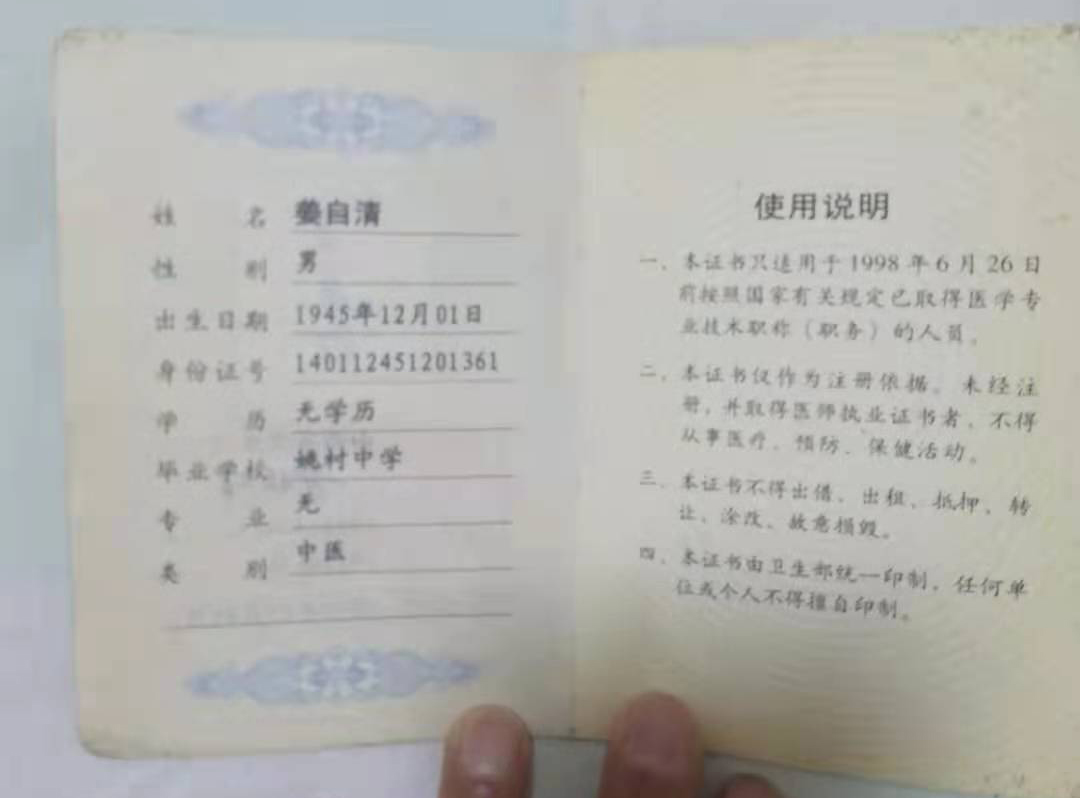 姓名 姜自清
性别 男
出生日期 1945年12月01日
身份证号 140112451201361
学历 无学历
毕业学校 姚村中学
专业 无
类别 中医
使用说明
一、本证书只适用于1998年6月26日
前按照国家有关规定已取得医学专
业技术职称（职务）的人员。
二、本证书仅作为注册依据。未经注
册，并取得医师执业证书者，不得
从事医疗、预防、保健活动。
三、本证书不得出借、出租、抵押、转
让、涂改、故意损毁。
四、本证书由卫生部统一印制，任何单
位或个人不得擅自印制。